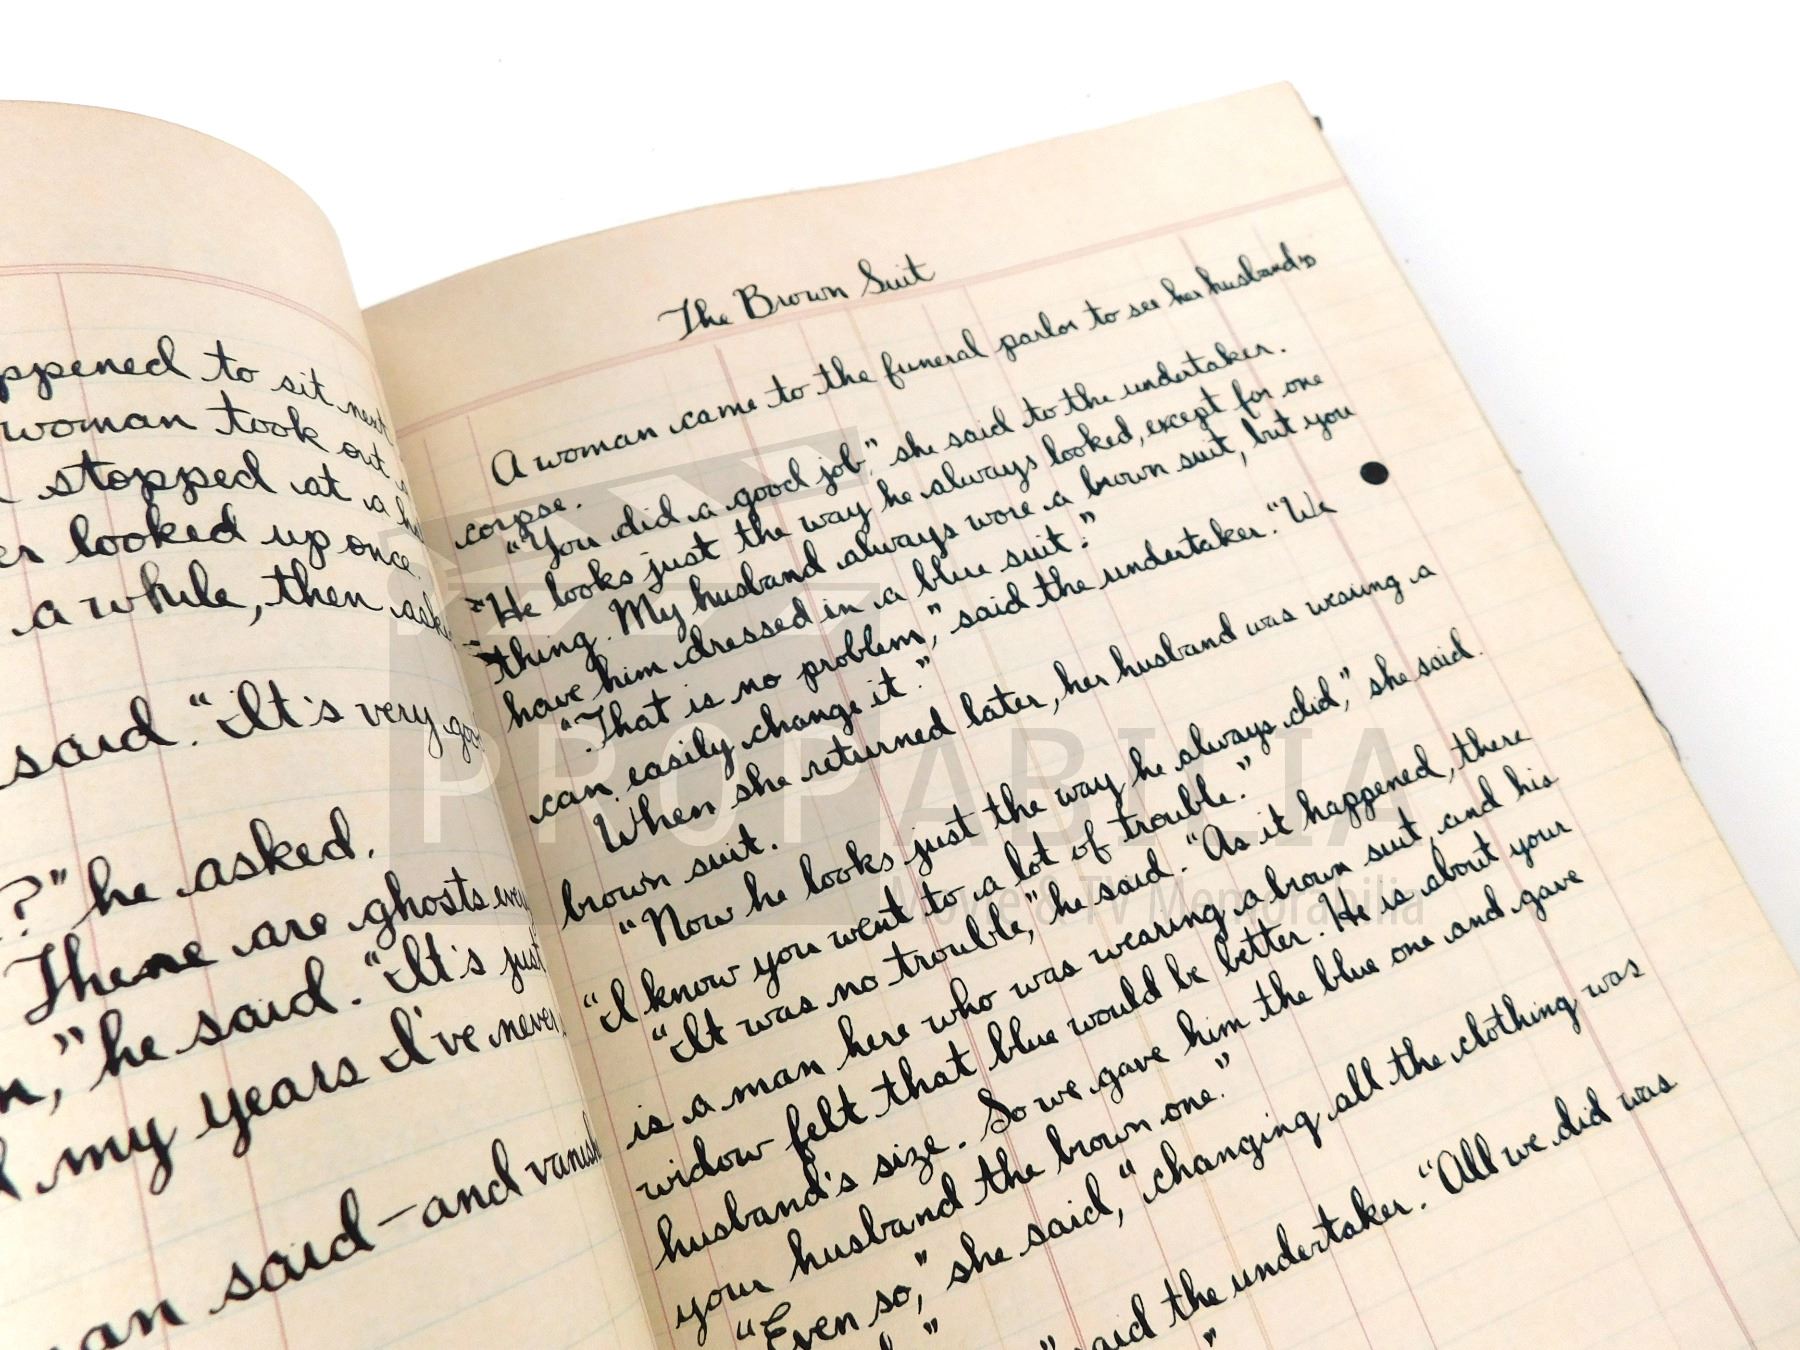 ppened to sit next
woman took out a
stopped at a
er looked up once.
a while, then ask
said. "It's very go
?" he asked.
There are ghosts every
n," he said. "It's just
my years I've never
an said—and vanish
The Brown Suit
A woman came to the funeral parlor to see her husbands
corpse.
"You did a good job," she said to the undertaker.
"He looks just the way he always looked, except for one
thing. My husband always wore a brown suit, but you
have him dressed in a blue suit."
"That is no problem," said the undertaker. "We
can easily change it."
When she returned later, her husband was wearing a
brown suit.
"Now he looks just the way he always did," she said.
"I know you went to a lot of trouble."
"It was no trouble," he said. "As it happened, there
is a man here who was wearing a brown suit, and his
widow felt that blue would be better. He is about your
husband's size. So we gave him the blue one and gave
your husband the brown one."
"Even so," she said, "changing all the clothing was
said the undertaker. "All we did was
PROPABILIA
Movie & TV Memorabilia